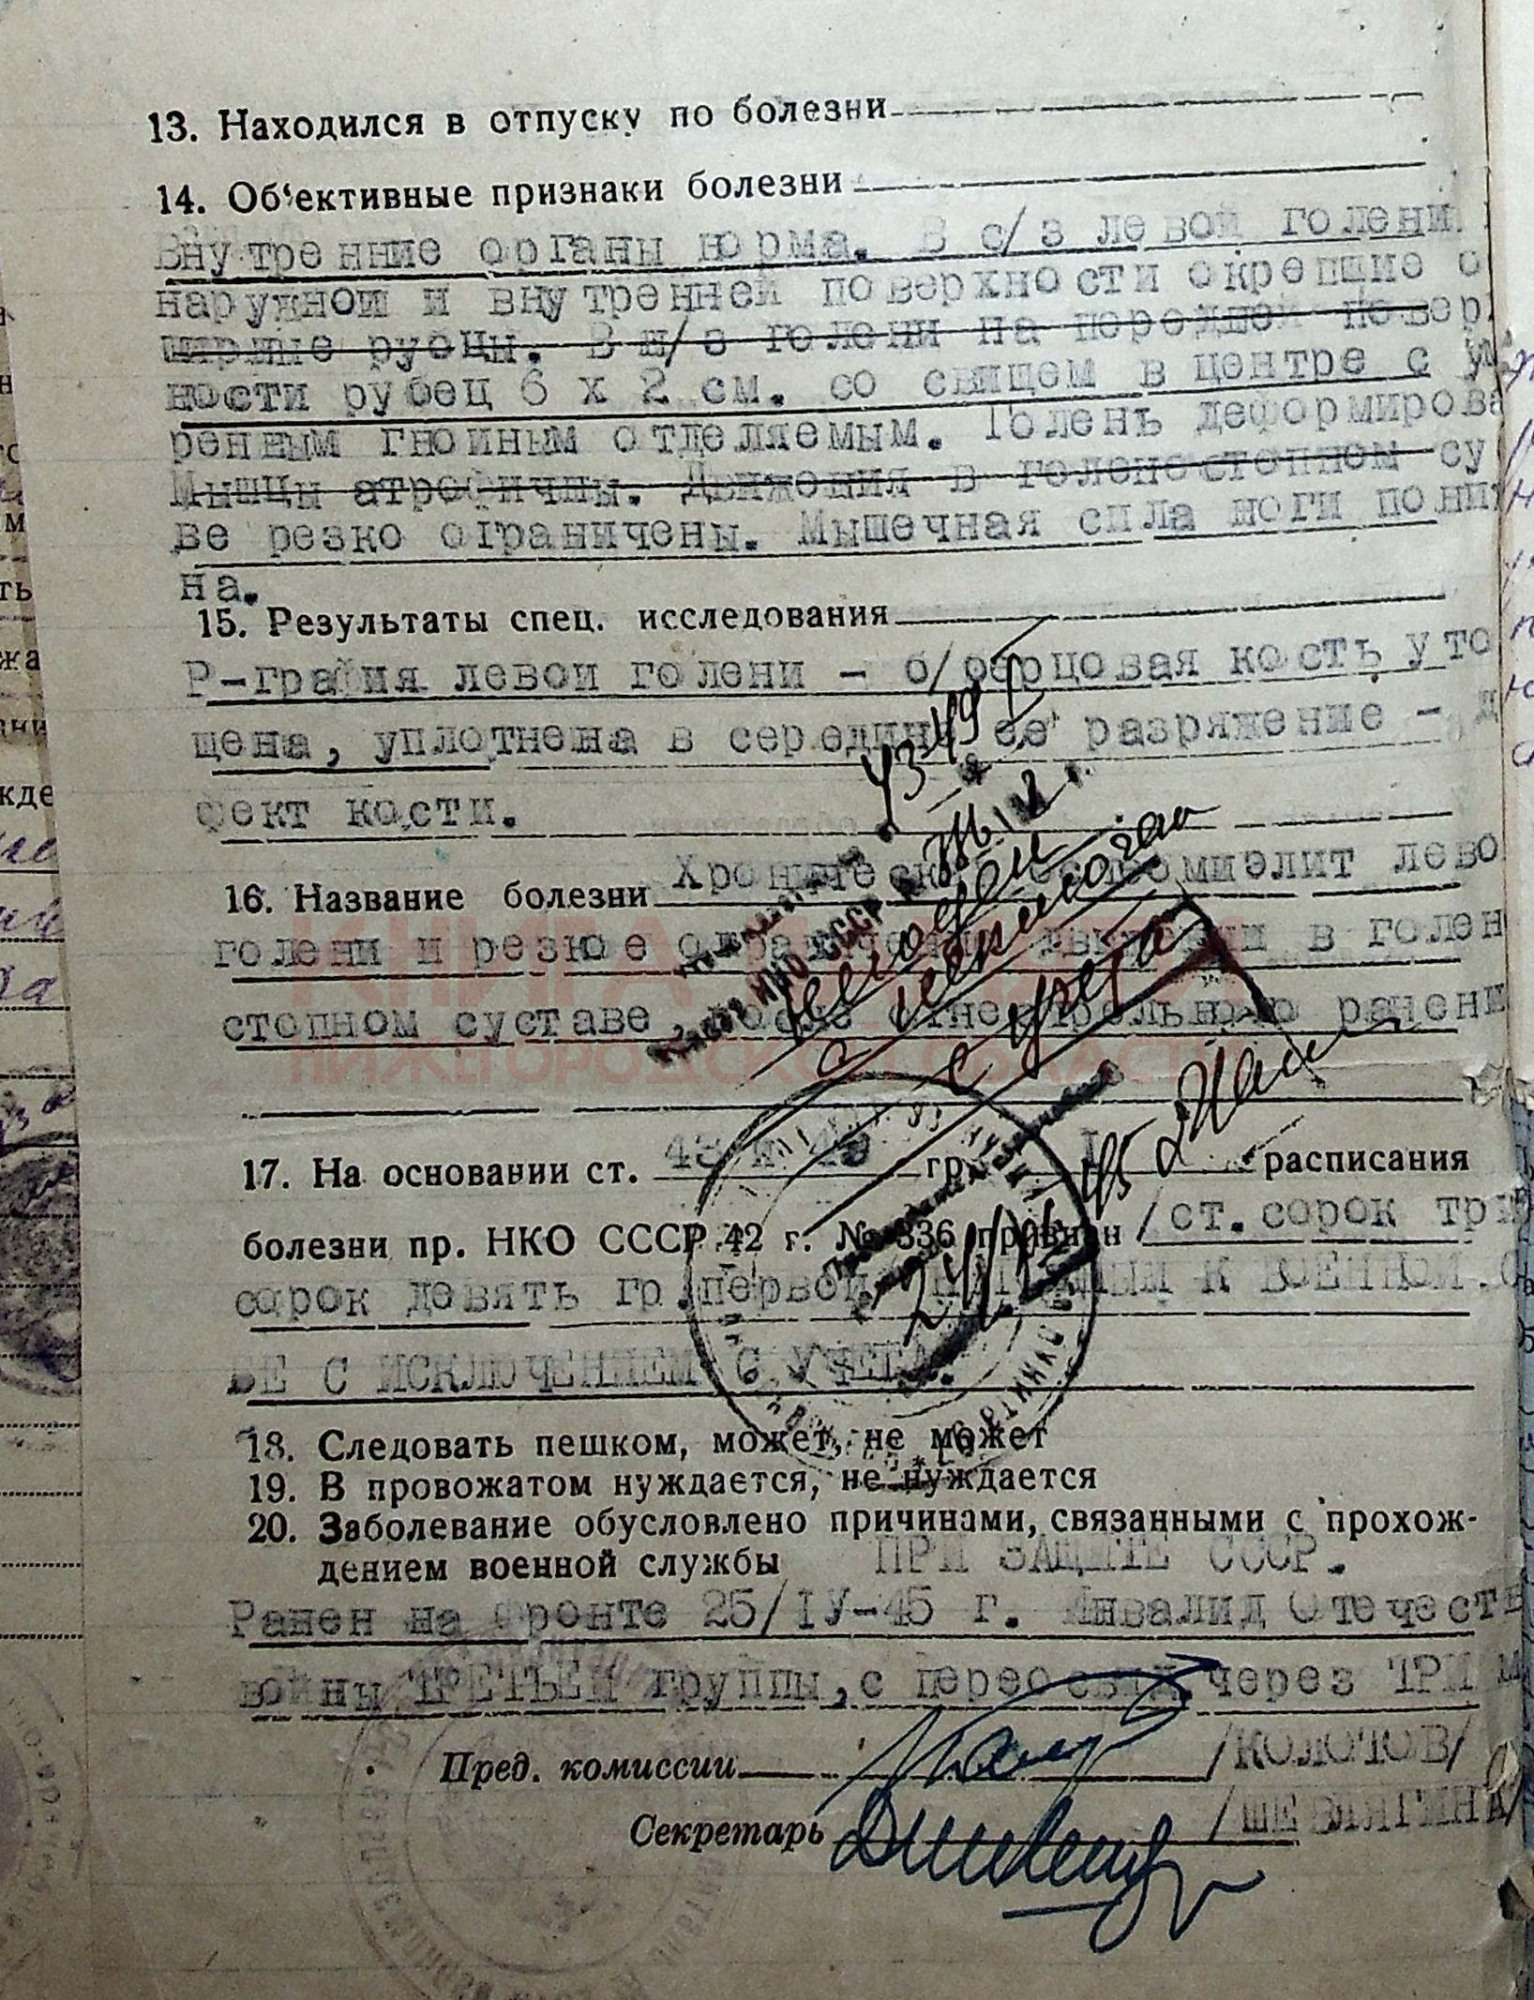 13. Находился в отпуску по болезни
14. Об‘ективные признаки болезни
Внутренние органы норма. В с/з левой голени
наружной и внутренней поверхности окрепшие о
ширные рубцы. В н/з голени на передней повер
ности рубец 6 х 2 см. со свищем в центре с ум
ренным гнойным отделяемым. Голень деформирова
Мышцы атрофичны. Движения в голеностопном су
ве резко ограничены. Мышечная сила ноги пониж
на.
15. Результаты спец. исследования
Р-графия левой голени - б/берцовая кость уто
щена, уплотнена в середине ее разряжение - д
фект кости.
16. Название болезни Хронический остеомиелит лево
голени и резкое ограничение движений в голен
стопном суставе, после огнестрельного ранени
КНИГА ПАМЯТИ
НИЖЕГОРОДСКОЙ ОБЛАСТИ
17. На основании ст. 43 и 49 гр. I расписания
болезни пр. НКО СССР 42 г. № 336 признан /ст. сорок три
сорок девять гр. первой/ НЕГОДНЫМ К ВОЕННОЙ С
БЕ С ИСКЛЮЧЕНИЕМ С УЧЕТА.
18. Следовать пешком, может, не может
19. В провожатом нуждается, не нуждается
20. Заболевание обусловлено причинами, связанными с прохож-
дением военной службы ПРИ ЗАЩИТЕ СССР.
Ранен на фронте 25/IУ-45 г. Инвалид Отечеств
войны ТРЕТЬЕЙ группы, с переосвид. через ТРИ м
Пред. комиссии /КОЛОТОВ/
Секретарь /ШЕВЛЯГИНА/